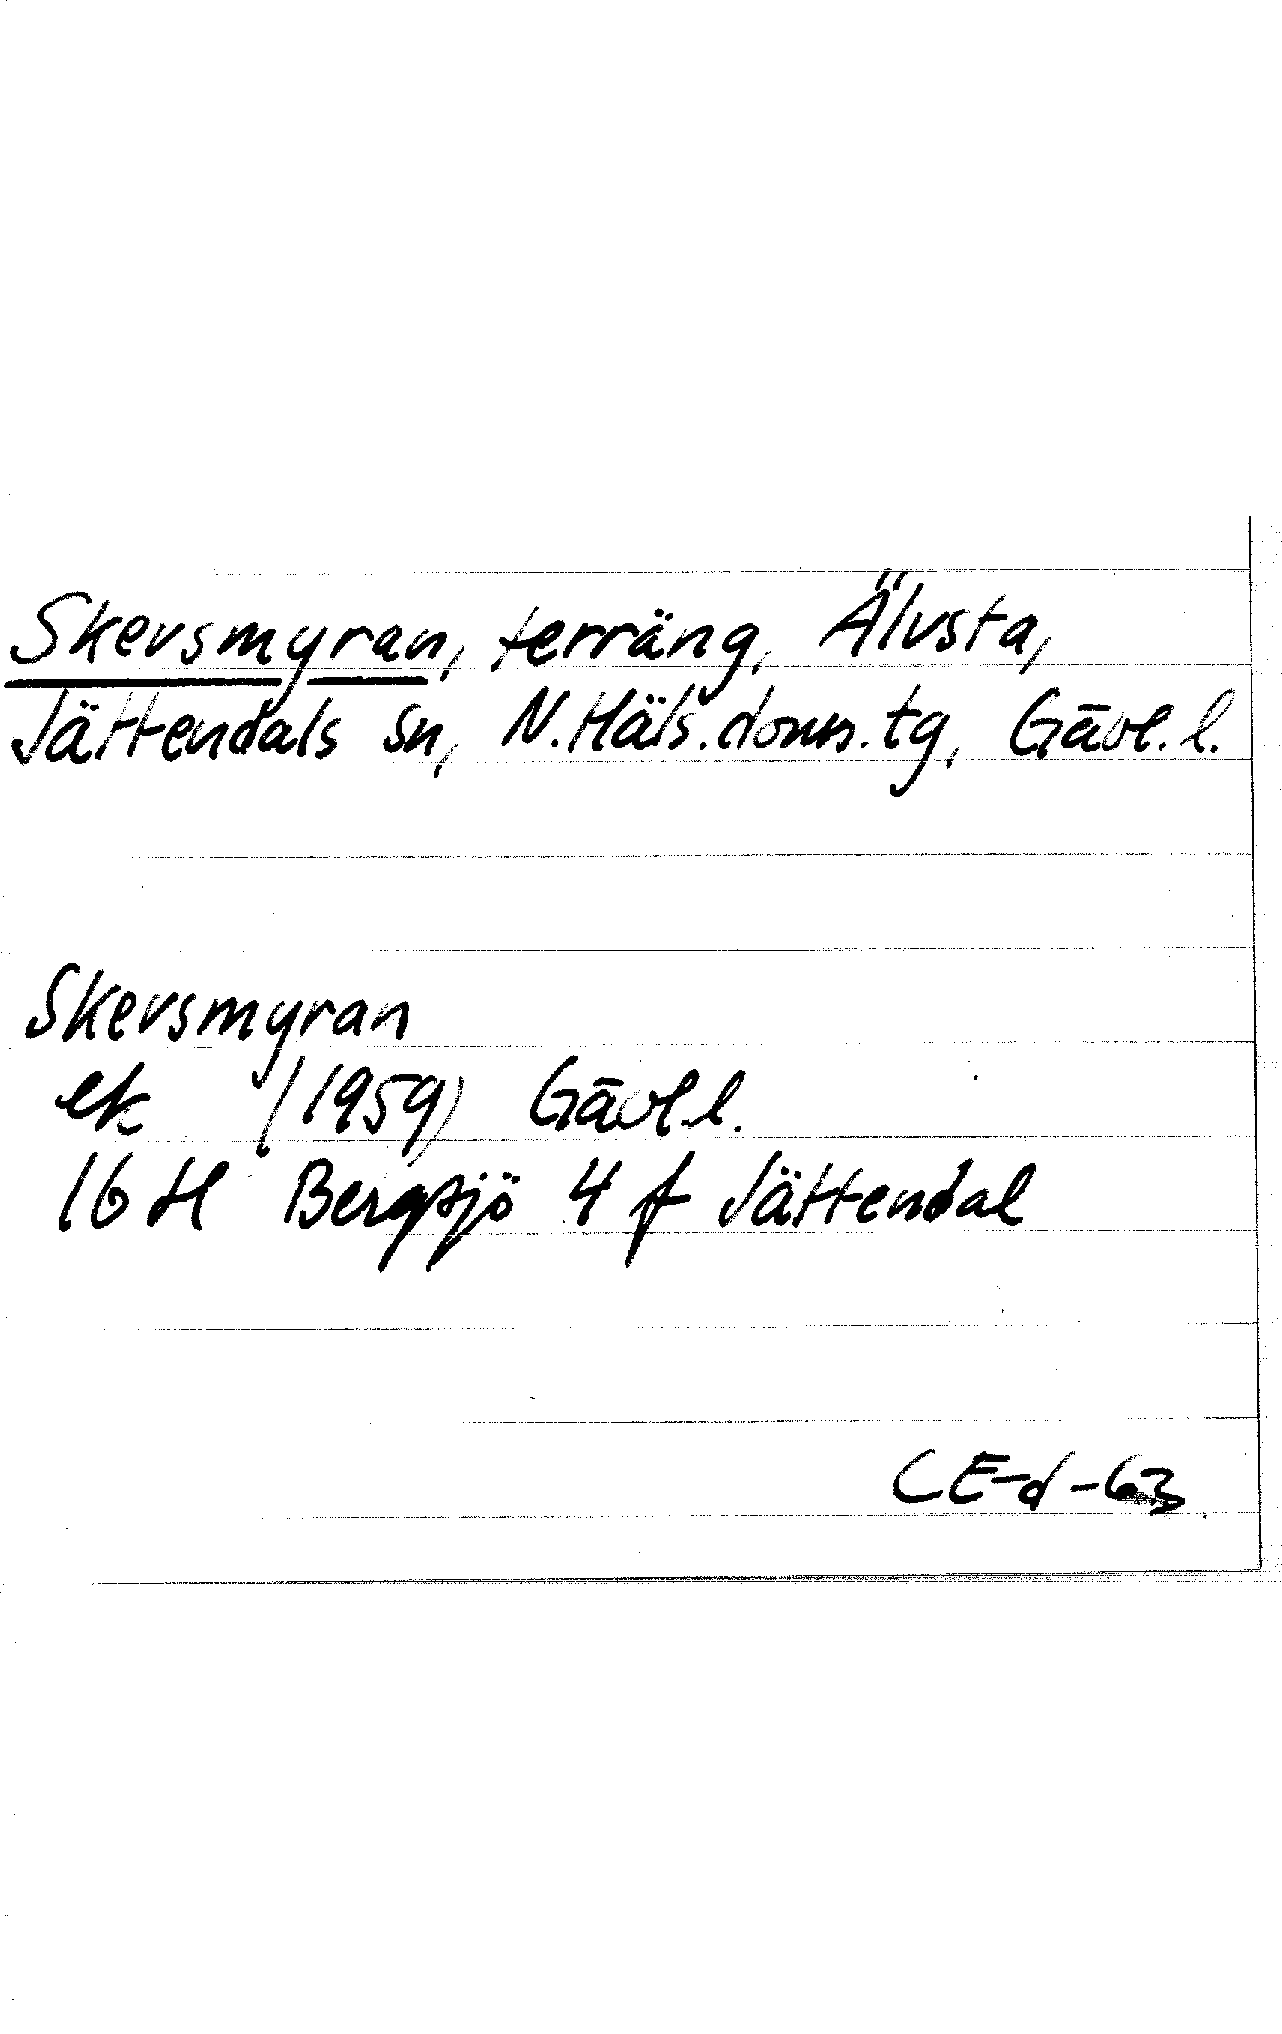 Skevsmyran, terräng, Älvsta,
Jättendals sn, N. Häls. doms. tg, Gävl. l.
Skevsmyran
ek (1959) Gävl. l.
16 H Bergsjö 4 f Jättendal
CE-d-63